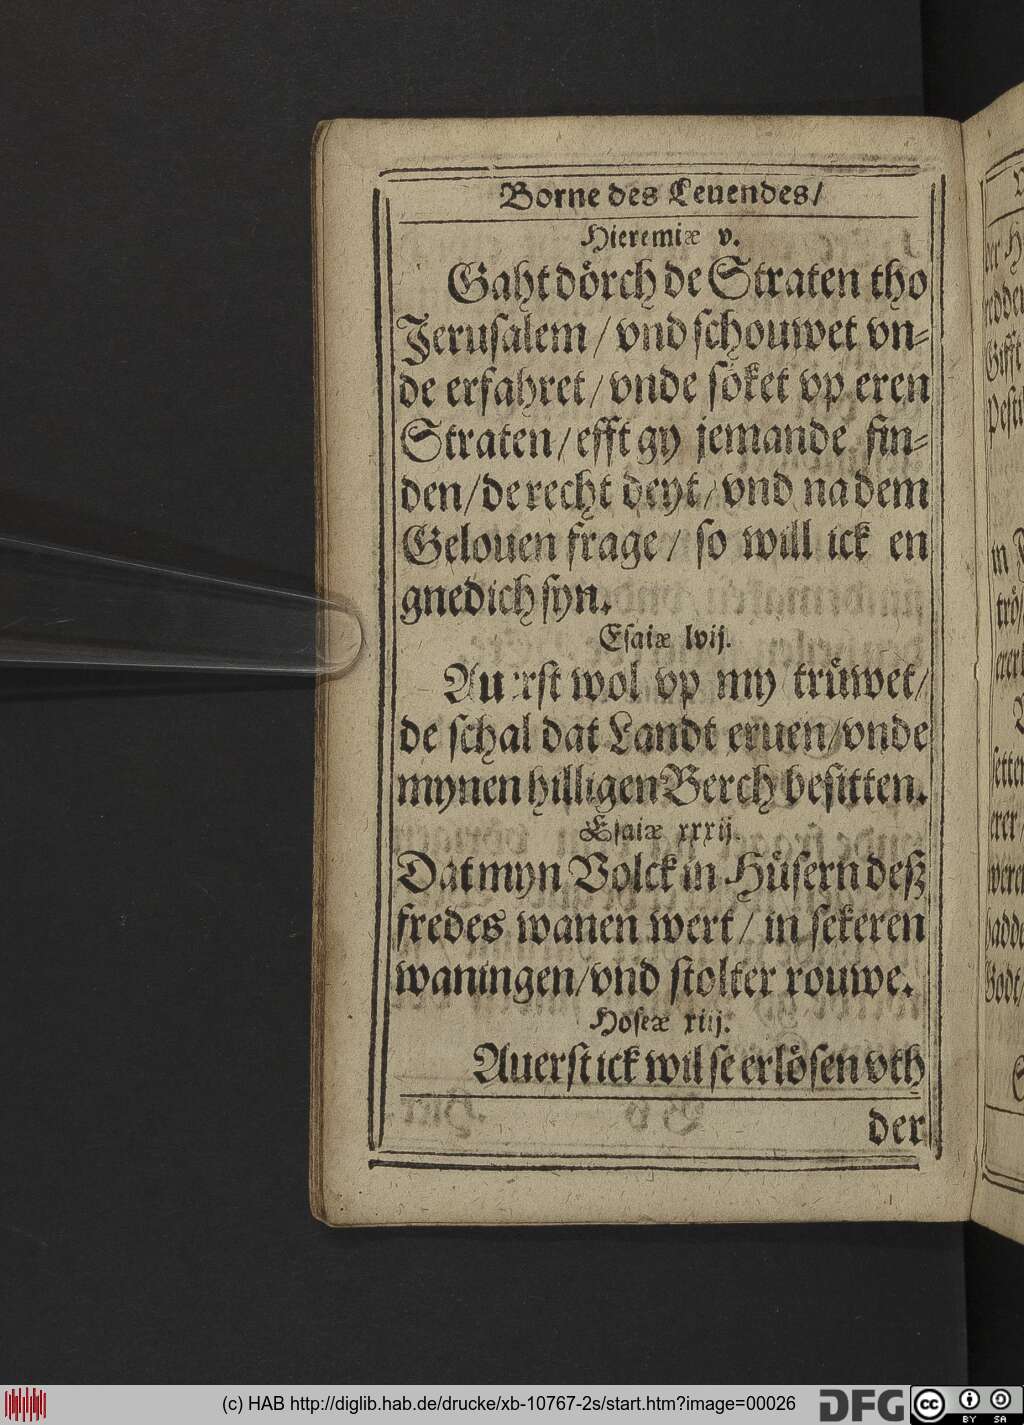 Borne des Leuendes/
Hieremiæ v.
Gaht dörch de Straten tho
Jerusalem / vnd schouwet vn-
de erfahret / vnde söket vp eren
Straten / efft gy jemande fin-
den / de recht deyt / vnd na dem
Gelouen frage / so will ick en
gnedich syn.
Esaiæ lvij.
Auerst wol vp my trüwet /
de schal dat Landt eruen / vnde
mynen hilligen Berch besitten.
Esaiæ xxxij.
Dat myn Volck in Hüsern deß
fredes wanen wert / in sekeren
waningen / vnd stolter rouwe.
Hoseæ xiij.
Auerst ick wil se erlösen vth
der
(c) HAB http://diglib.hab.de/drucke/xb-10767-2s/start.htm?image=00026
DFG
cc
BY SA